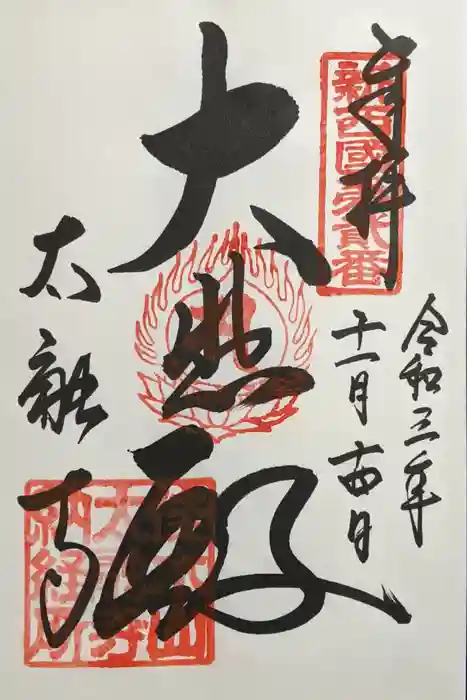 奉拝
新西國第貳番
令和三年
十一月十四日
大悲殿
太融寺
納経所